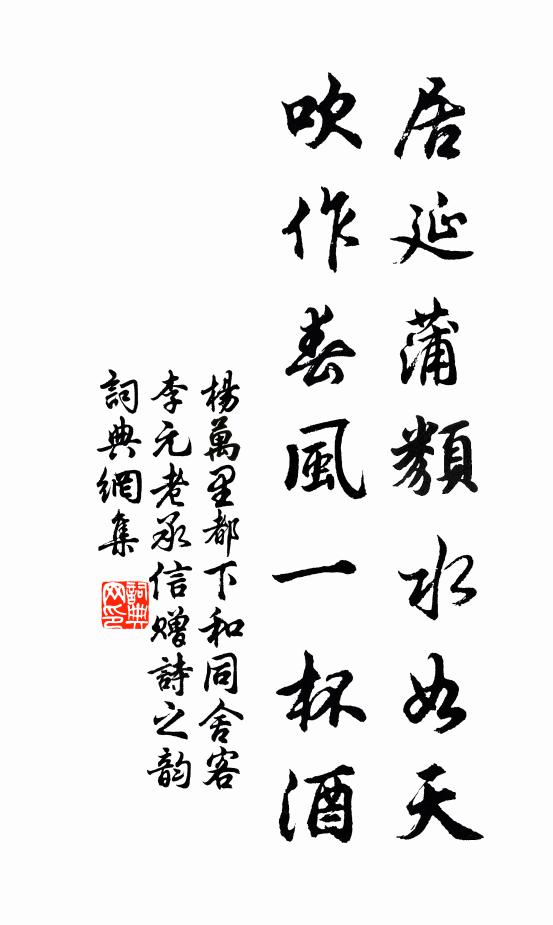 居延蒲類水如天
吹作春風一杯酒
楊萬里都下和同舍客
李元老承信贈詩之韵
詞典網集
詞典
网印